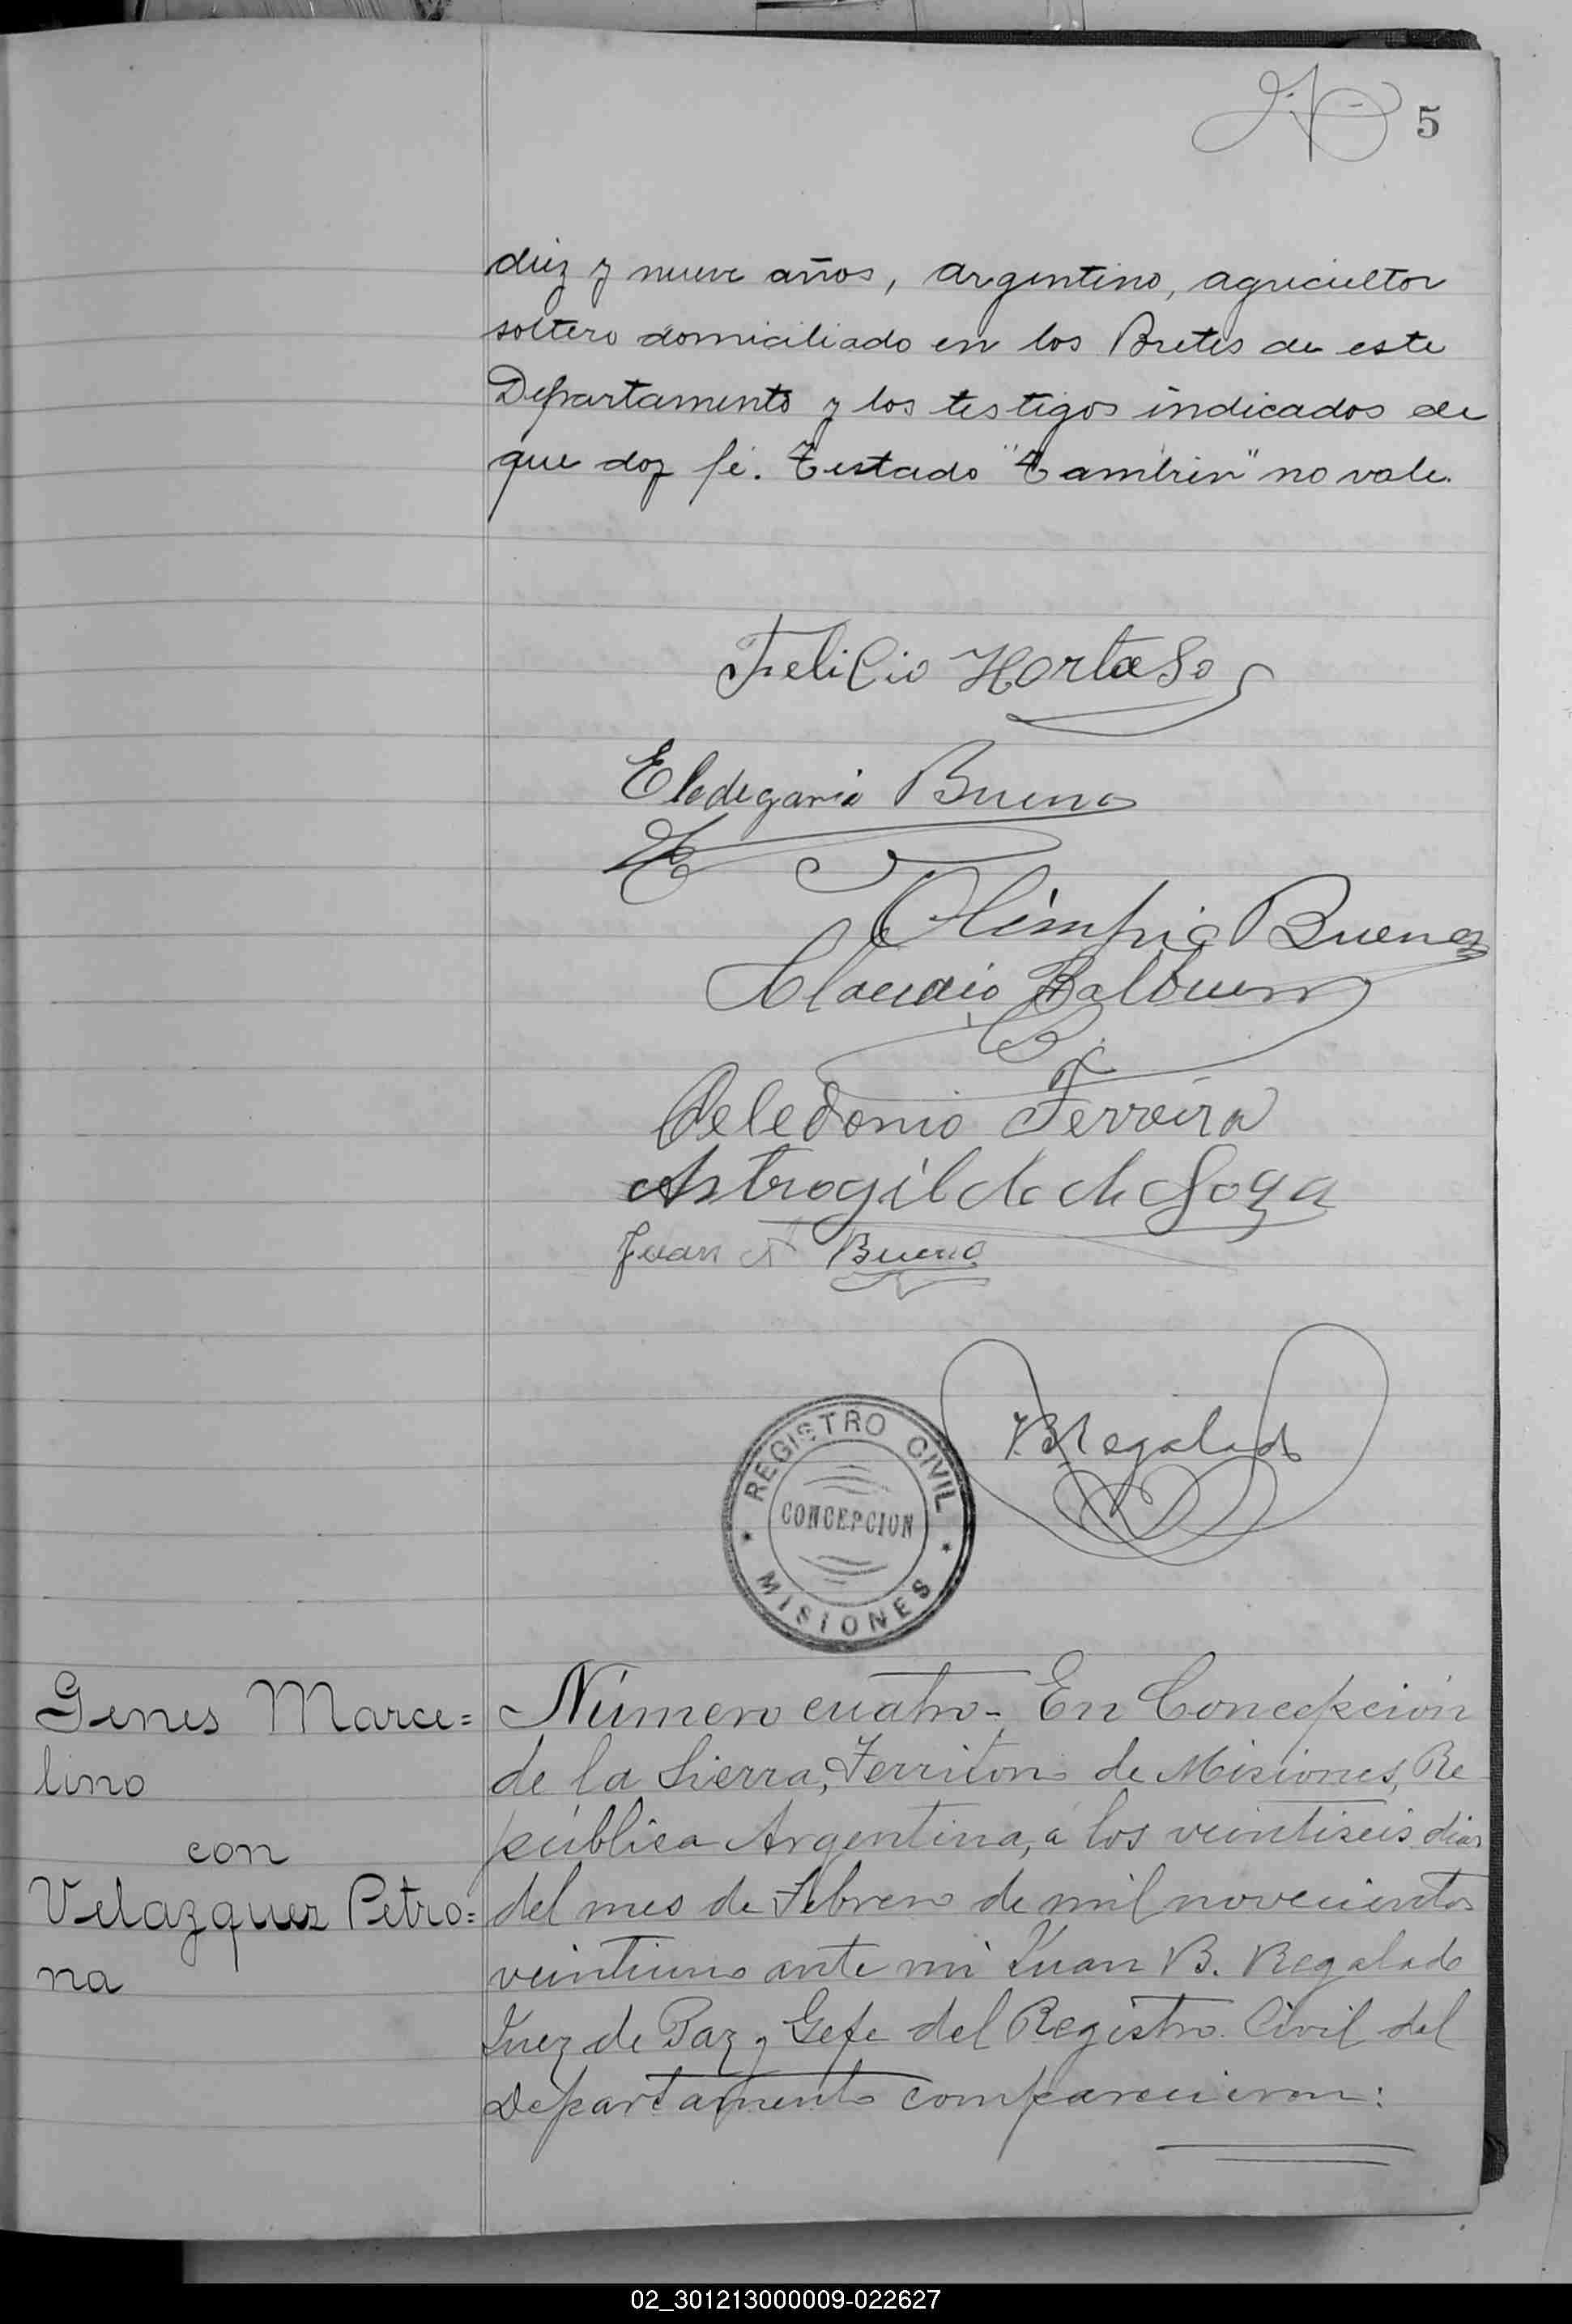 5
diez y nueve años, argentino, agricultor
soltero domiciliado en los Bretes de este
Departamento y los testigos indicados de
que doy fé. Testado "Tambien" no vale.
Felicio Hortaso
Eledegario Bueno
Olimpio Bueno
Claudio Balbuen
Celedonio Ferreira
Astrogildo de Soza
Juan A Bueno
J.B.Regalado
REGISTRO CIVIL
CONCEPCION
MISIONES
Genes Marce=
lino
con
Velazquez Petro=
na
Número cuatro-, En Concepción
de la Sierra, Territorio de Misiones, Re
pública Argentina, a los veintiseis dias
del mes de Febrero de mil novecientos
veintiuno ante mi Juan B. Regalado
Juez de Paz y Gefe del Registro Civil del
Departamento comparecieron:
02_301213000009-022627